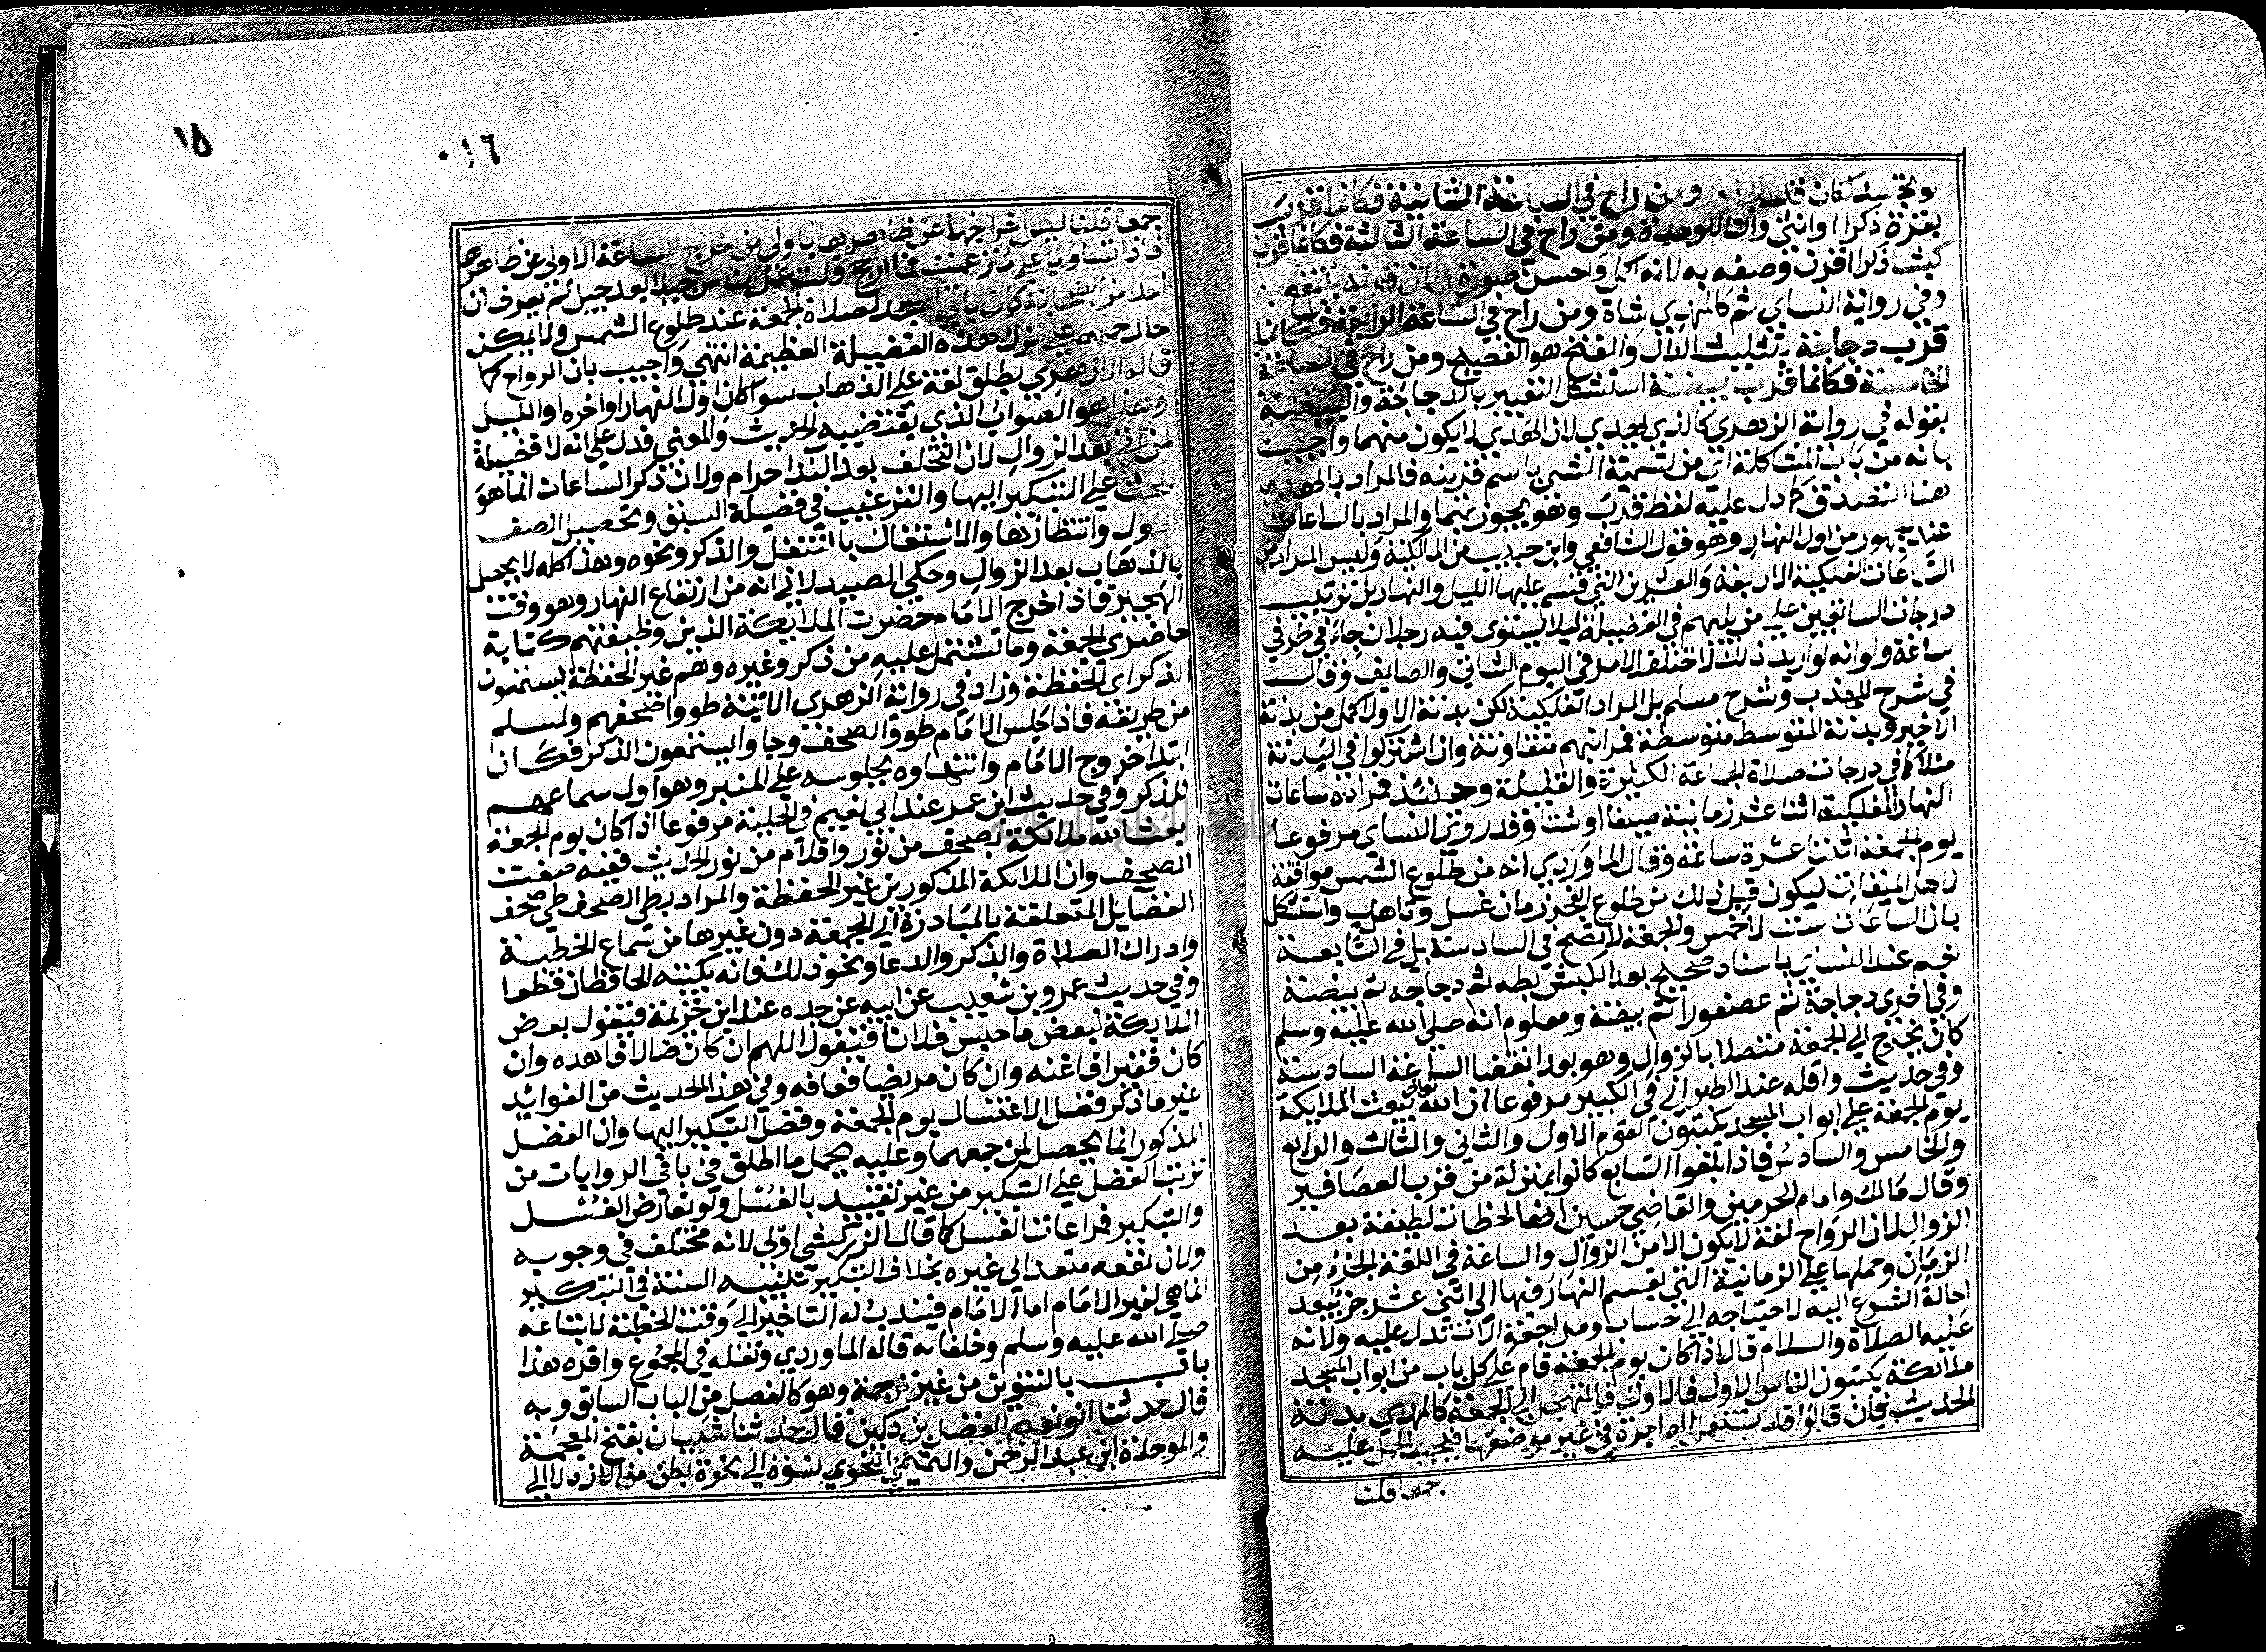 لو تجسد لكان قدر الجزور ومن راح في الساعة الثانية فكانما قرب
بقرة ذكرا او انثى والتا للوحدة ومن راح في الساعة الثالثة فكانما قرب
كبشا ذكرا اقرن وصفه به لانه اكمل واحسن صورة ولان قرنه ينتفع به
وفي رواية النساي ثم كالمهدي شاة ومن راح في الساعة الرابعة فكانما
قرب دجاجة بتثليث الدال والفتح هو الفصيح ومن راح في الساعة
الخامسة فكانما قرب بيضة استشكل التعبير بالدجاجة والبيضة
بقوله في رواية الزهري كالذي يهدي لان الهدي لا يكون منهما واجيب
بانه من باب المشاكلة اي من تسمية الشي باسم قرينه فالمراد بالهدي
هنا التصدق كما دل عليه لفظ قرب وهو يجوز بهما والمراد بالساعات
عند الجمهور من اول النهار وهو قول الشافعي وابن حبيب من المالكية وليس المراد من
الساعات الفلكية الاربعة والعشرين التي قسم عليها الليل والنهار بل ترتيب
درجات السابقين على من يليهم في الفضيلة ليلا يستوي فيه رجلان جاءا في طرفي
ساعة ولانه لو اريد ذلك لاختلف الامر في اليوم الشاتي والصايف وقال
في شرح المهذب وشرح مسلم بل المراد الفلكية لكن بدنة الاول اكمل من بدنة
الاخير وبدنة المتوسط متوسطة فمراتبهم متفاوتة وان اشتركوا في البدنة
مثلا كما في درجات صلاة الجماعة الكثيرة والقليلة وحينئذ فمراده ساعات
النهار الفلكية اثنا عشر زمانية صيفا او شتا وقد روى النساي مرفوعا
يوم الجمعة اثنتا عشرة ساعة وقال الماوردي انه من طلوع الشمس موافقة
لاهل الميقات ليكون قبل ذلك من طلوع الفجر زمان غسل وتاهب واستشكل
بان الساعات ست لا خمس والجمعة لا تصح في السادسة بل في السابعة
نعم عند النساي باسناد صحيح بعد الكبش بطه ثم دجاجه ثم بيضة
وفي اخرى دجاجة ثم عصفورا ثم بيضة ومعلوم انه صلى الله عليه وسلم
كان يخرج الى الجمعة متصلا بالزوال وهو بعد انقضا الساعة السادسة
وفي حديث واثله عند الطبراني في الكبير مرفوعا ان الله تعالى يبعث الملايكة
يوم الجمعة على ابواب المسجد يكتبون القوم الاول والثاني والثالث والرابع
والخامس والسادس فاذا بلغوا السابع كانوا بمنزلة من قرب العصافير
وقال مالك وامام الحرمين والقاضي حسين انها لحظات لطيفة بعد
الزوال لان الرواح لغة لا يكون الا من الزوال والساعة في اللغة الجزء من
الزمان وحملها على الزمانية التي يقسم النهار فيها الى اثني عشر جزا يبعد
احالة الشرع اليه لاحتياجه الى حساب ومراجعة الات تدل عليه ولانه
عليه الصلاة والسلام قال اذا كان يوم الجمعة قام على كل باب من ابواب المسجد
ملائكة يكتبون الناس الاول فالاول فالمتهجر الى الجمعة كالمهدي بدنة
الحديث فان قالوا قد يستعمل الهاجرة في غير موضعها فيجب الحمل عليه
جمعا قلنا
١٥
٠١٦
جمعا قلنا ليس اخراجها عن ظاهرها باولى من اخراج الساعة الاولى عن ظاهرها
فاذا تساويا على ما زعمت فما ارجح قلت عمل الناس جيلا بعد جيل لم يعرف ان
احدا من الصحابة كان ياتي المسجد لصلاة الجمعة عند طلوع الشمس ولا يمكن
حال حملهم على ترك هذه الفضيلة العظيمة انتهى واجيب بان الرواح كما
قاله الازهري يطلق لغة على الذهاب سوا كان اول النهار او اخره او الليل
وهذا هو الصواب الذي يقتضيه الحديث والمعنى فدل على انه لا فضيلة
لمن اتى بعد الزوال لان التخلف بعد الندا حرام ولان ذكر الساعات انما هو
للحث على التبكير اليها والترغيب في فضيلة السبق وتحصيل الصف
الاول وانتظارها والاشتغال بالتنفل والذكر ونحوه وهذا كله لا يحصل
بالذهاب بعد الزوال وحكى الصيدلاني انه من ارتفاع النهار وهو وقت
الهجير فاذا خرج الامام حضرت الملايكة الذين وظيفتهم كتابة
حاضري الجمعة وما تشتمل عليه من ذكر وغيره وهم غير الحفظة يستمعون
الذكر اي الخطبة وزاد في رواية الزهري الاتية طووا صحفهم ولمسلم
من طريقه فاذا جلس الامام طووا الصحف وجاوا يستمعون الذكر فكان
ابتدا خروج الامام وانتهاوه بجلوسه على المنبر وهو اول سماعهم
للذكر وفي حديث ابن عمر عند ابي نعيم في الحلية مرفوعا اذا كان يوم الجمعة
بعث الله ملائكة بصحف من نور واقلام من نور الحديث ففيه صفت
الصحف وان الملايكة المذكورين غير الحفظة والمراد بطي الصحف طي صحف
الفضايل المتعلقة بالمبادرة الى الجمعة دون غيرها من سماع الخطبة
وادراك الصلاة والذكر والدعا ونحو ذلك فانه يكتبه الحافظان قطعا
وفي حديث عمرو بن شعيب عن ابيه عن جده عند ابن خزيمة فيقول بعض
الملايكة لبعض ما حبس فلانا فيقول اللهم ان كان ضالا فاهده وان
كان فقيرا فاغنه وان كان مريضا فعافه وفي هذا الحديث من الفوائد
غير ما ذكر فضل الاغتسال يوم الجمعة وفضل التبكير اليها وان الفضل
المذكور انما يحصل لمن جمعهما وعليه يحمل ما اطلق في باقي الروايات من
ترتب الفضل على التبكير من غير تقييد بالغسل ولو تعارض الغسل
والتبكير فمراعات الغسل كما قال الزركشي اولى لانه مختلف في وجوبه
ولان نفعه متعد الى غيره بخلاف التبكير تنبيه السنة في التبكير
انما هي لغير الامام اما الامام فيندب له التاخير الى وقت الخطبة لاتباعه
صلى الله عليه وسلم وخلفائه قاله الماوردي ونقله في المجموع واقره هذا
باب بالتنوين من غير ترجمة وهو كالفصل من الباب السابق وبه
قال حدثنا ابو نعيم الفضل بن دكين قال حدثنا شيبان بفتح المعجمة
والموحدة ابن عبد الرحمن والتميمي النحوي نسبة الى نحوة بطن من الازد لا الى